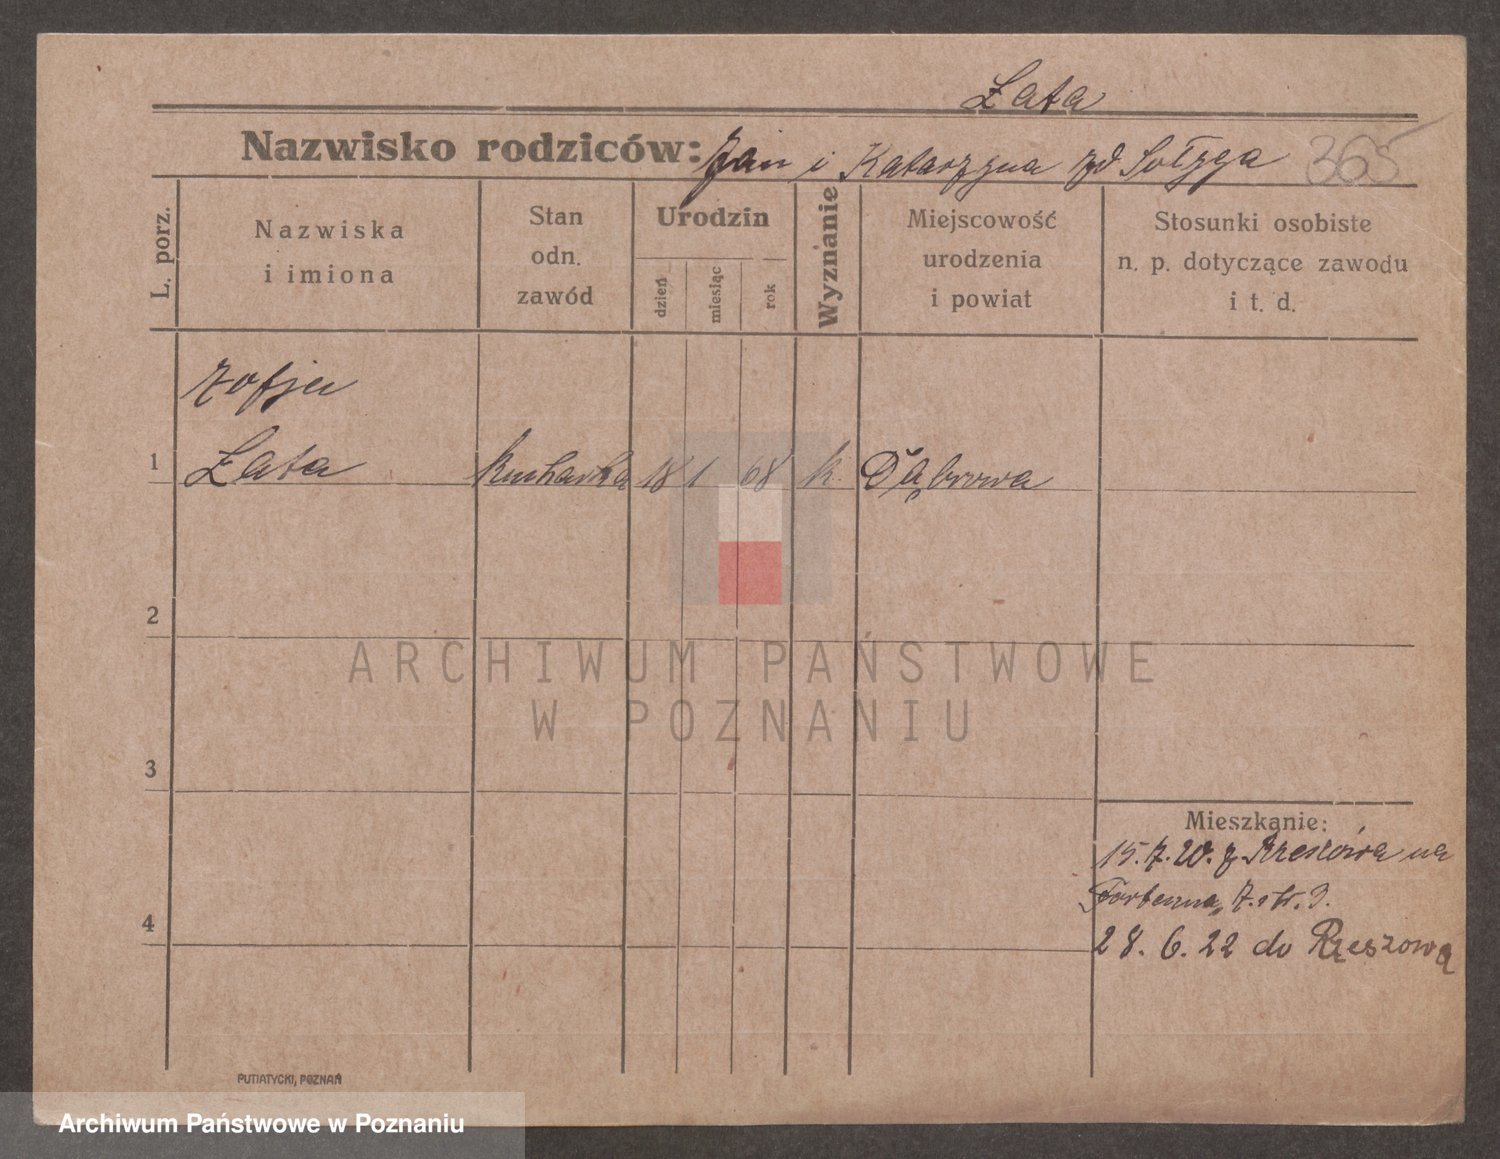 Łata
Nazwisko rodziców: Jan i Katarzyna zd Sołyga 365
L. porz.
Nazwiska
i imiona
Stan
odn.
zawód
Urodzin
dzień
miesiąc
rok
Wyznanie
Miejscowość
urodzenia
i powiat
Stosunki osobiste
n. p. dotyczące zawodu
i t. d.
Zofja
1 Łata kucharka 18 1 68 k. Dąbrowa
2
ARCHIWUM PAŃSTWOWE
W POZNANIU
3
Mieszkanie:
15.7.20. z Rzeszowa na
7. 
4
28. 6. 22 do Rzeszowa
PUTIATYCKI, POZNAŃ
Archiwum Państwowe w Poznaniu